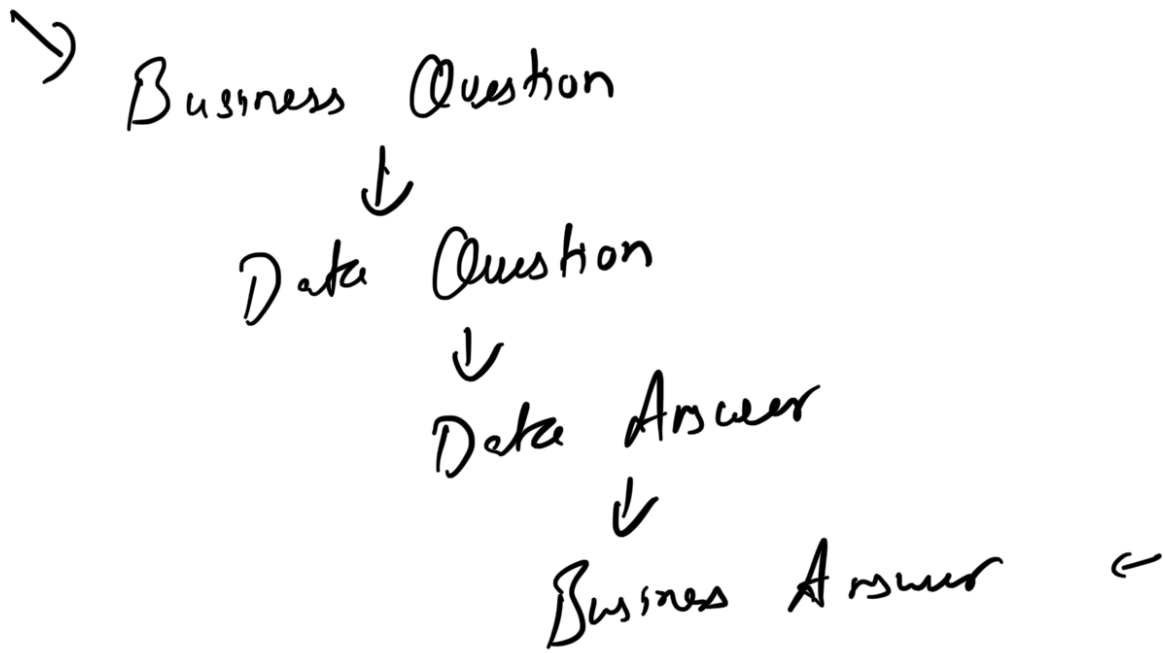 Business Question
Data Question
Data Answer
Business Answer